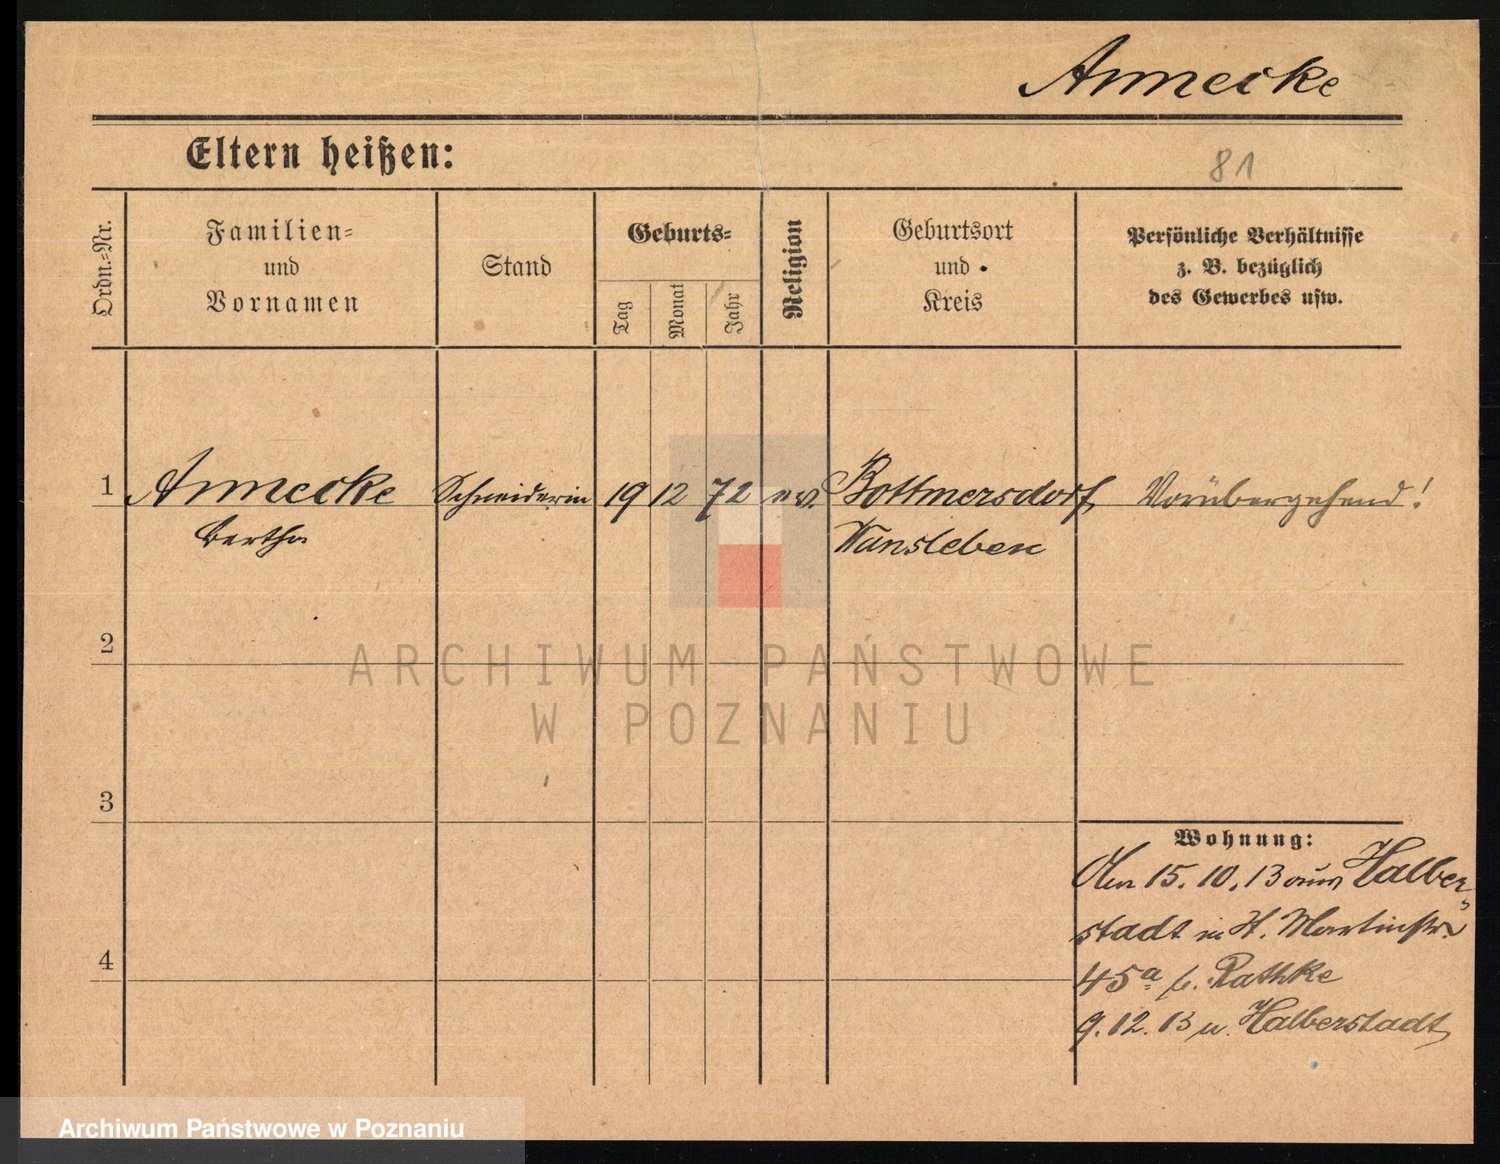 Annecke
Eltern heißen:
81
Ordn.-Nr.
Familien-
und
Vornamen
Stand
Geburts-
Tag
Monat
Jahr
Religion
Geburtsort
und
Kreis
Persönliche Verhältnisse
z. B. bezüglich
des Gewerbes usw.
1 Annecke Schneiderin 19 12 72 ev. Bottmersdorf Vorübergehend!
Bertha Wansleben
2
ARCHIWUM PAŃSTWOWE
W POZNANIU
3
Wohnung:
15.10.13 aus Halber-
stadt in St. Martinstr.
4
45a b. Rathke
9.12.13 n. Halberstadt
Archiwum Państwowe w Poznaniu